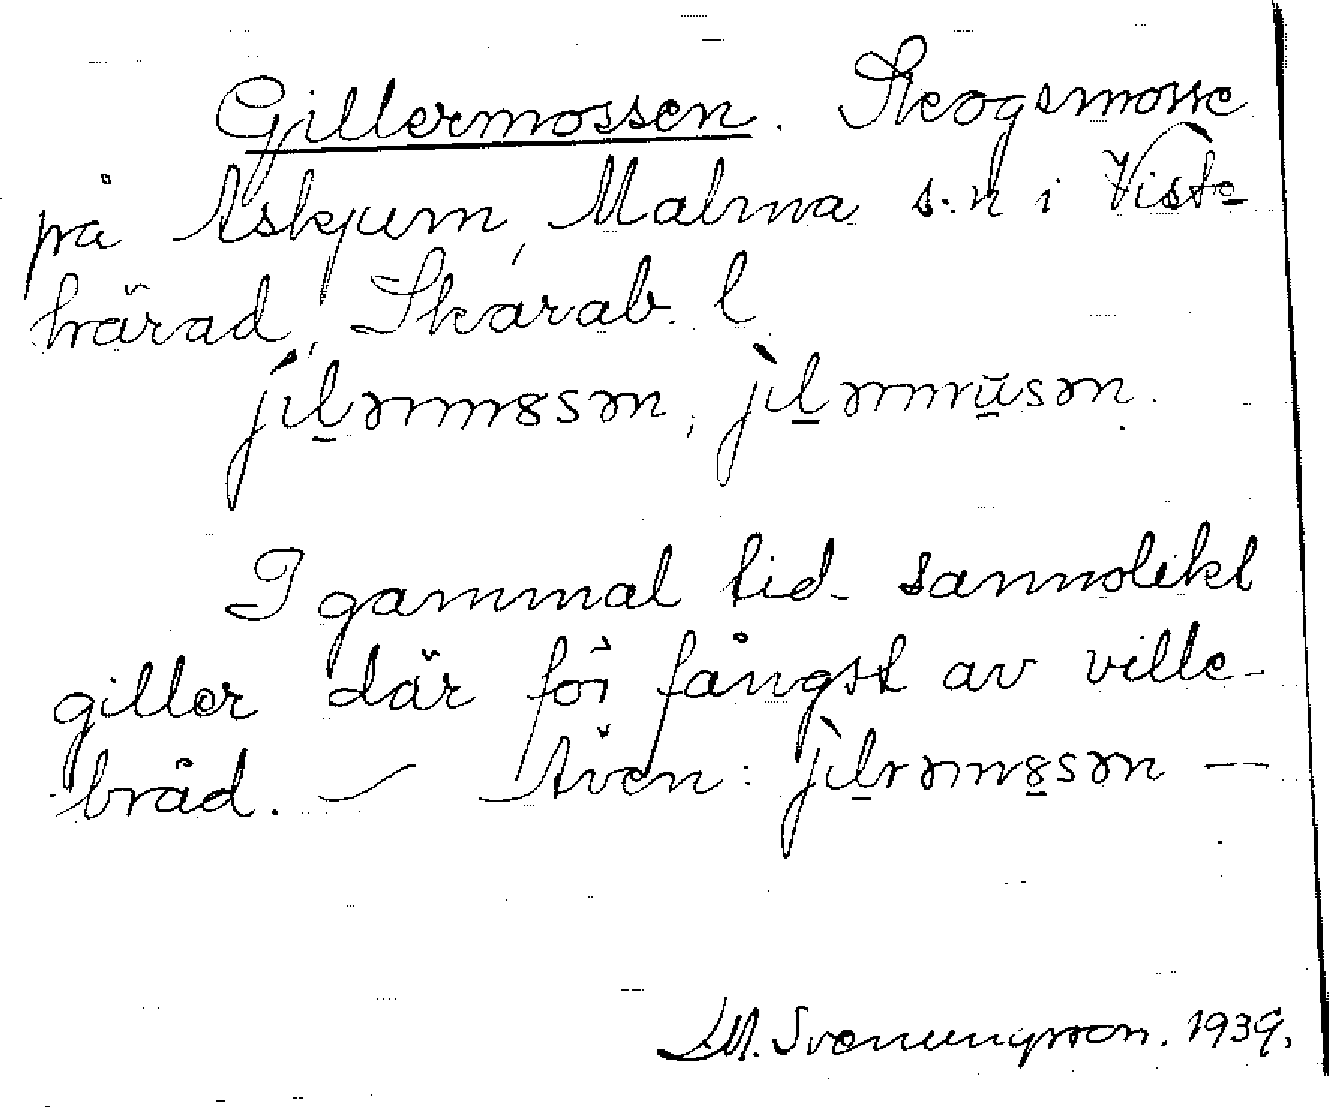 Gillermossen. Skogsmosse
på Askjum, Malma s:n i Viste
härad, Skarab. l.
jilərmɞsən, jilərmüsən.
I gammal tid sannolikt
giller där för fångst av ville-
bråd. — Även: jilrəmɞsən —
L.M. Svenungsson. 1939.